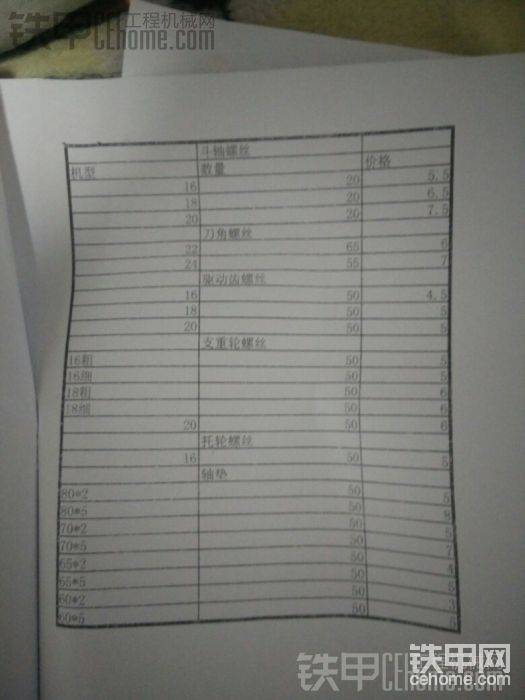 铁甲工程机械网
CEhome.com
斗轴螺丝
机型 数量 价格
16 20 5.5
18 20 6.5
20 20 7.5
刀角螺丝
22 65 6
24 55 7
驱动齿螺丝
16 50 4.5
18 50 5
20 50 5
支重轮螺丝
16粗 50 5
16细 50 5
18粗 50 6
18细 50 6
20 50 6
托轮螺丝
16 50 5
轴垫
80*2 50 5
80*5 50
70*2 50 5
70*5 50 7
65*2 50 4
65*5 50 5
60*2 50 3
60*5 50
铁甲网
cehome.com